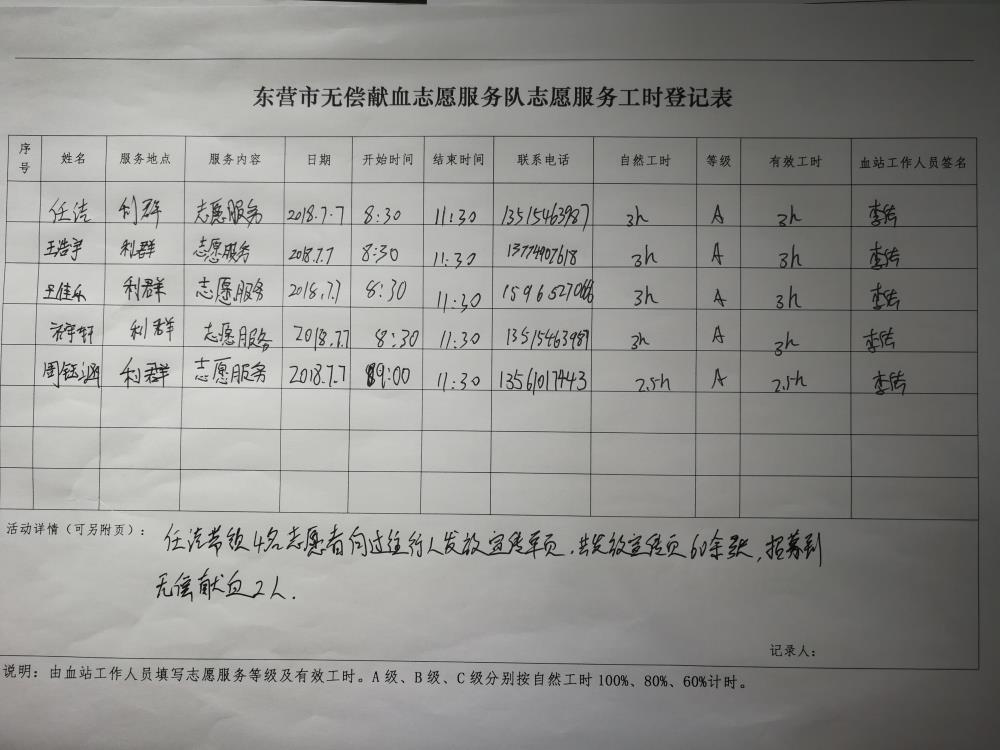 东营市无偿献血志愿服务队志愿服务工时登记表
序号 姓名 服务地点 服务内容 日期 开始时间 结束时间 联系电话 自然工时 等级 有效工时 血站工作人员签名
任洁 利群 志愿服务 2018.7.7 8:30 11:30 13515463987 3h A 3h 李传
王浩宇 利群 志愿服务 2018.7.7 8:30 11:30 13774907618 3h A 3h 李传
王佳乐 利群 志愿服务 2018.7.7 8:30 11:30 3h A 3h 李传
宇轩 利群 志愿服务 2018.7.7 8:30 11:30 13515463987 3h A 3h 李传
周钰涵 利群 志愿服务 2018.7.7 9:00 11:30 13561017443 2.5h A 2.5h 李传
活动详情（可另附页）： 任洁带领4名志愿者向过往行人发放宣传单页，共发放宣传页60余张，招募到
无偿献血2人.
记录人：
说明：由血站工作人员填写志愿服务等级及有效工时。A级、B级、C级分别按自然工时100%、80%、60%计时。